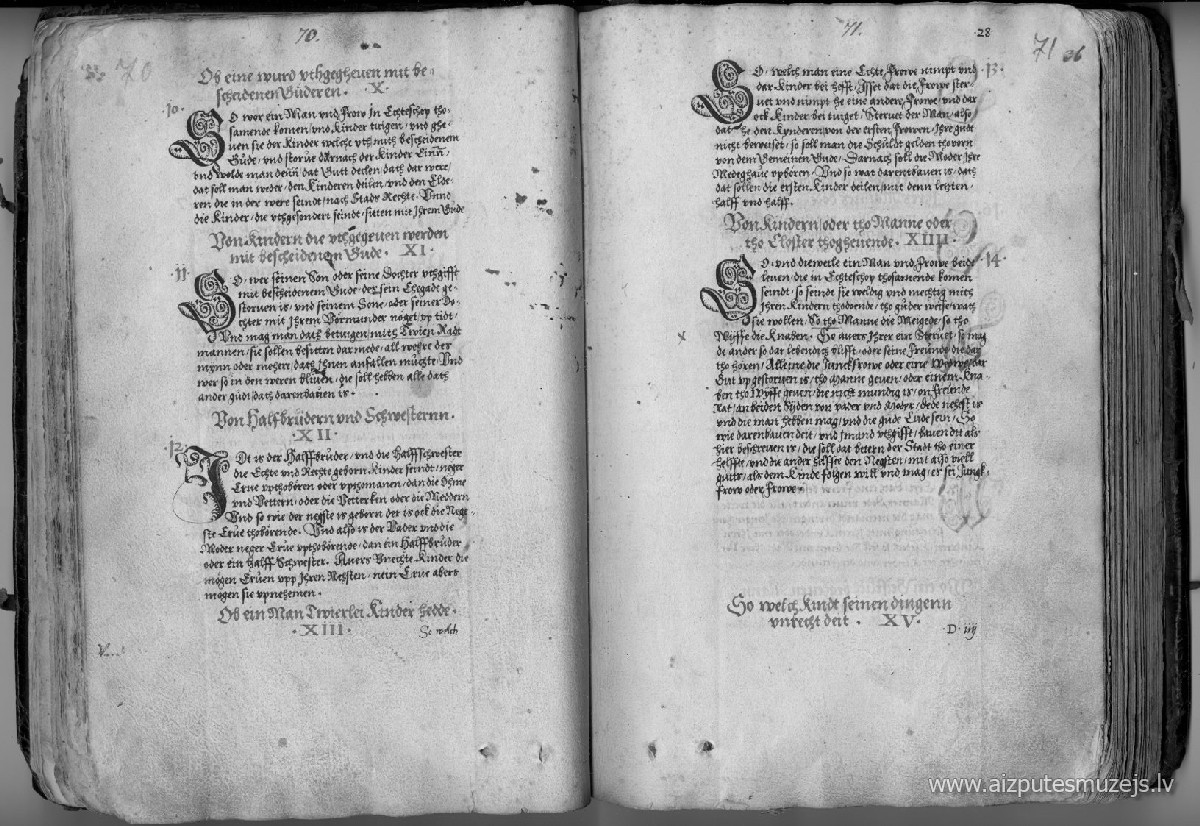 70.
70
Ob eine wurd vthgegheuen mit be-
scheidenen Güderen. X.
10.
SO wor ein Man vnd Frow in Echteschop tho-
samende komen, vnd Kinder tuigen, vnd ghe-
uen sie der Kinder welche vth mith bescheidenem
Gude, vnd storue darnach der Kinder Einn,
vnd wolde man denn dat Gutt deilen, dath dar were,
dat soll man weder den Kinderen deilen, vnd den Elde-
ren die in der were seindt, nach Stads Rechte. Vnnd
die Kinder, die vthgesondert seindt, sitten mit Jhrem Gude
Von Kindern die vthgegeuen werden
mit bescheidenen Gude. XI.
11.
SO wer seinen Son oder seine Dochter vthgifft
mit bescheidenem Gude, der sein Ehegade ge-
storuen is, vnd seinem Sone oder seiner Do-
chter mit Jhrem Vormunder nöget vp tidt,
Vnd mag man dath betuigen mith Twien Radt
mannen, sie sollen besitten dar mede, all wehre der
mynn oder mehert, dath Jhnen anfallen müchte. Vnd
wer so in den weren bliuen, die soll hebben alle dath
ander gudt dath darenbauen is.
Von Halfbrüdern vnd Schwesternn.
XII.
12.
JDt is der Halffbruder, vnd die Halffschwester
die Echte vnd Rechte geborn Kinder seindt, neger
Erue vpthobören oder vpthomanen, dan die Ohme
vnd Vettern, oder die Vetterken oder die Meddern
Vnd so wie der negste is geborn det is ock die Nege-
ste Erue thobörende. Vnd also is der Vader vnd die
Moder neger Erue vpthobörende, dan ein Halffbruder
oder ein halff Schwester. Auers Vnechte Kinder die
mögen Eruen vpp Jhren Negsten, nein Erue abers
mogen sie vpnehemen.
Ob ein Man Twierlei Kinder hedde.
XIII.
So welch
71.
28
71
36
13.
SO welch man eine Echte Frowe nimpt vnd
dar Kinder bei hefft, Jsset dat die Frowe ster-
uet vnd nimpt he eine andere Frowe, vnd dar
ock Kinder bei tuiget, Steruet der Man, also
dat he den Kynderen von der ersten Frowen, Jhre gudt
nicht bereuset, so soll man die Schuldt gelden thovorn
von dem Gemeinen Gude, Darnach soll die Moder Jhre
Medeghaue vpbören. Vnd so war darenbauen is, dath
dat sollen die ersten Kinder deilen mit denn lesten,
halff vnd halff.
Von Kindern, oder tho Manne oder
tho Closter thogheuende. XIIII.
14.
SO, vnd dieweile ein Man vnd Frowe beide
leuen, die in Echteschop thosamende komen
seindt, so seinde sie weldig vnd mechtig mith
Jhren Kindern thodoende, tho güder weise, wath
sie wollen, So tho Manne die Meigede, so tho
Wyffe die Knaben. So auers Jhrer ein Steruet, so mag
di ander so dar lebendich blifft, oder seine Freunde die dar
tho hören, Alleine die Junckfrowe oder eine
Gut vpgestoruen is, tho Manne geuen, oder einem Kna-
ben tho Wyffe geuen, die nicht mundig is, on freunde
Rat, an beiden Syden von vader vnd Moder, dede nehest is
vnd die man hebben mag, vnd die gude Lude sein, So
wie darenbauen deit, vnd jmand vthgifft, bauen dit als
hier beschreuen is, die soll dat betern der Stadt tho einer
helffte, vnd die ander helffte den Negsten, mit also viell
guits, als dem Kinde folgen will vnd mag, er sei Jungk
frow oder Frowe.
So welch Kindt seinen dingenn
vnrecht deit. XV.
D iiij
www.aizputesmuzejs.lv